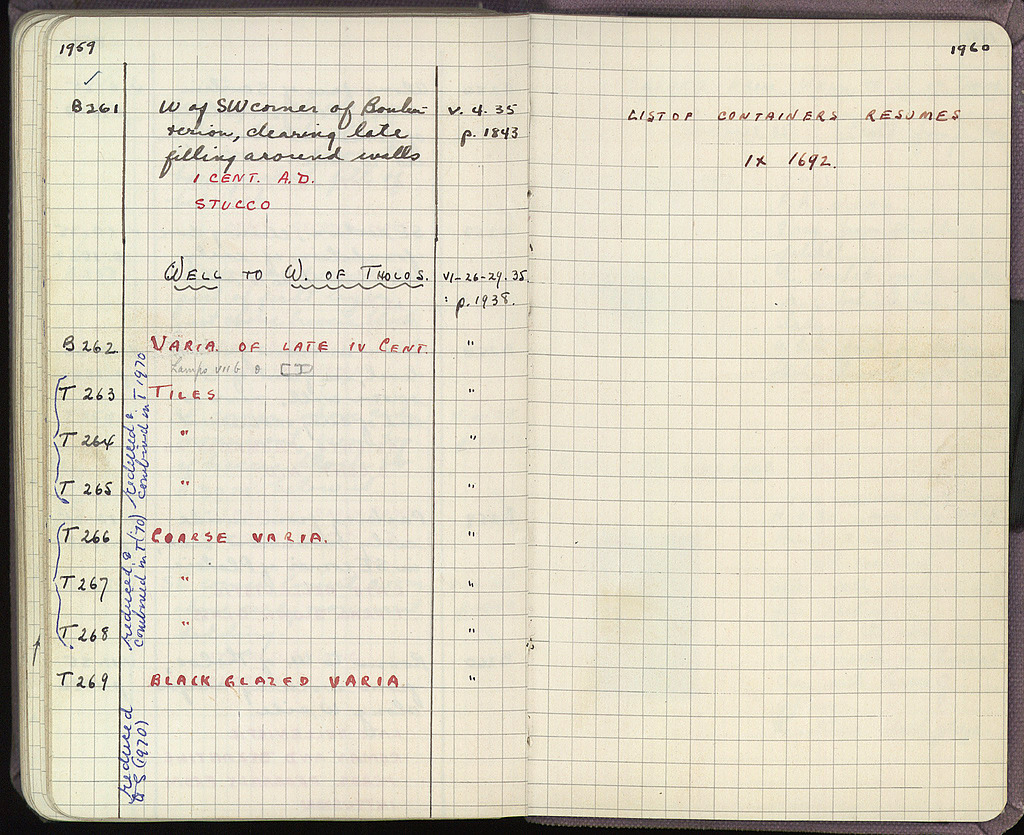 1959
✓
B261 W of SW corner of Bouleu- V. 4. 35
terion, clearing late p. 1843
filling around walls
1 CENT. A.D.
STUCCO
WELL TO W. OF THOLOS. VI-26-29. 35.
: p. 1938.
B 262 VARIA. OF LATE IV CENT. "
Lamps VII B &
T 263 TILES
T 264 " "
T 265 " "
reduced & combined in T 1970
T 266 COARSE VARIA. "
T 267 " "
T 268 " "
reduced & combined in T ('70)
T 269 BLACK GLAZED VARIA "
reduced
(1970)
1960
LIST OF CONTAINERS RESUMES
IX 1692.